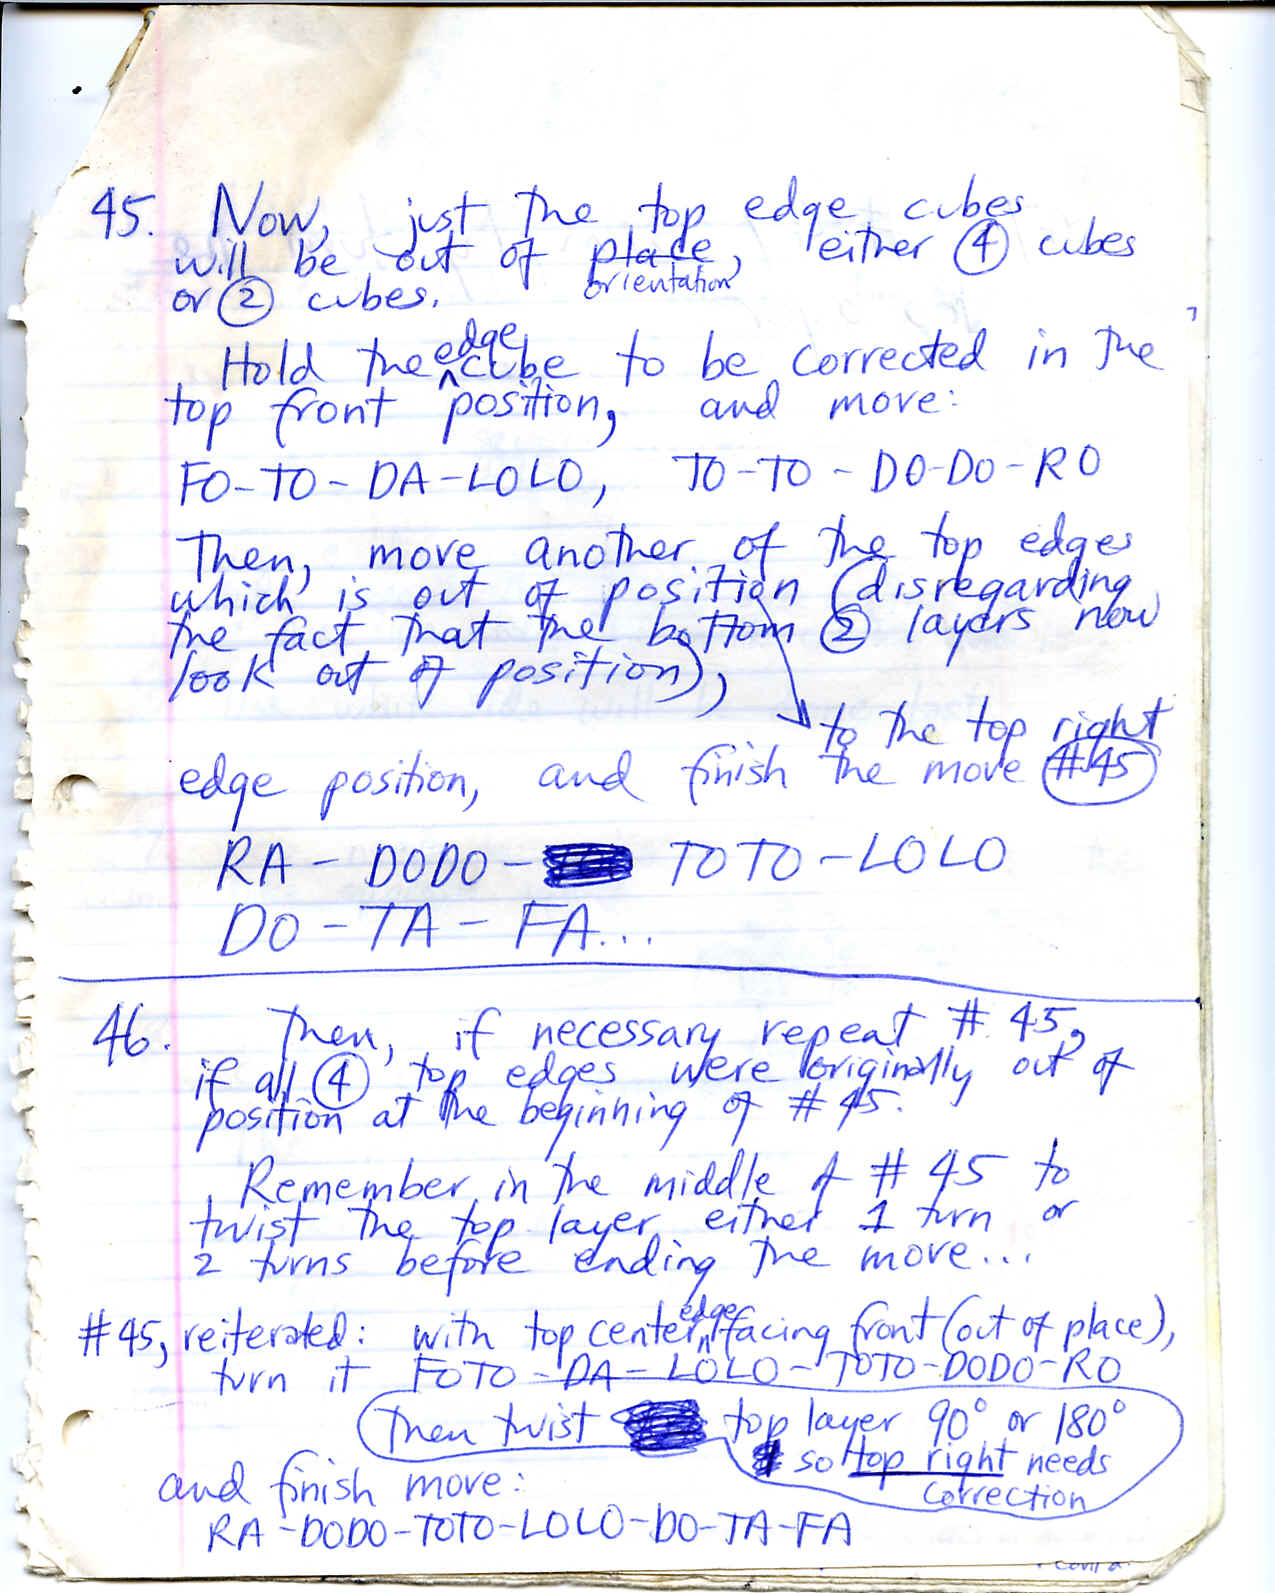 45. Now, just the top edge cubes
will be out of place, either 4 cubes
orientation
or 2 cubes.
edge
Hold the cube to be corrected in the
top front position, and move:
FO-TO-DA-LOLO, TO-TO-DO-DO-RO
Then, move another of the top edges
which is out of position (disregarding
the fact that the bottom 2 layers now
look out of position),
to the top right
edge position, and finish the move #45
RA-DODO- TOTO-LOLO
DO-TA-FA...
46. Then, if necessary repeat #45,
if all 4 top edges were originally out of
position at the beginning of #45.
Remember in the middle of #45 to
twist the top layer either 1 turn or
2 turns before ending the move...
edge
#45, reiterated: with top center facing front (out of place),
turn it FOTO-DA-LOLO-TOTO-DODO-RO
Then twist top layer 90° or 180°
so top right needs
correction
and finish move:
RA-DODO-TOTO-LOLO-DO-TA-FA